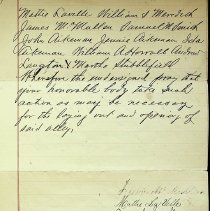 Mattie Lavelle William S Meredith
James M. Walton Samuel M Smith
John Ackeman Jennie Ackeman Ida
Ackeman William A Howell Andrew
Langton & Martha Stubblefield
Wherefore the undersigned pray that
your honorable body take such
action as may be necessary
for the laying out and opening of
said alley.